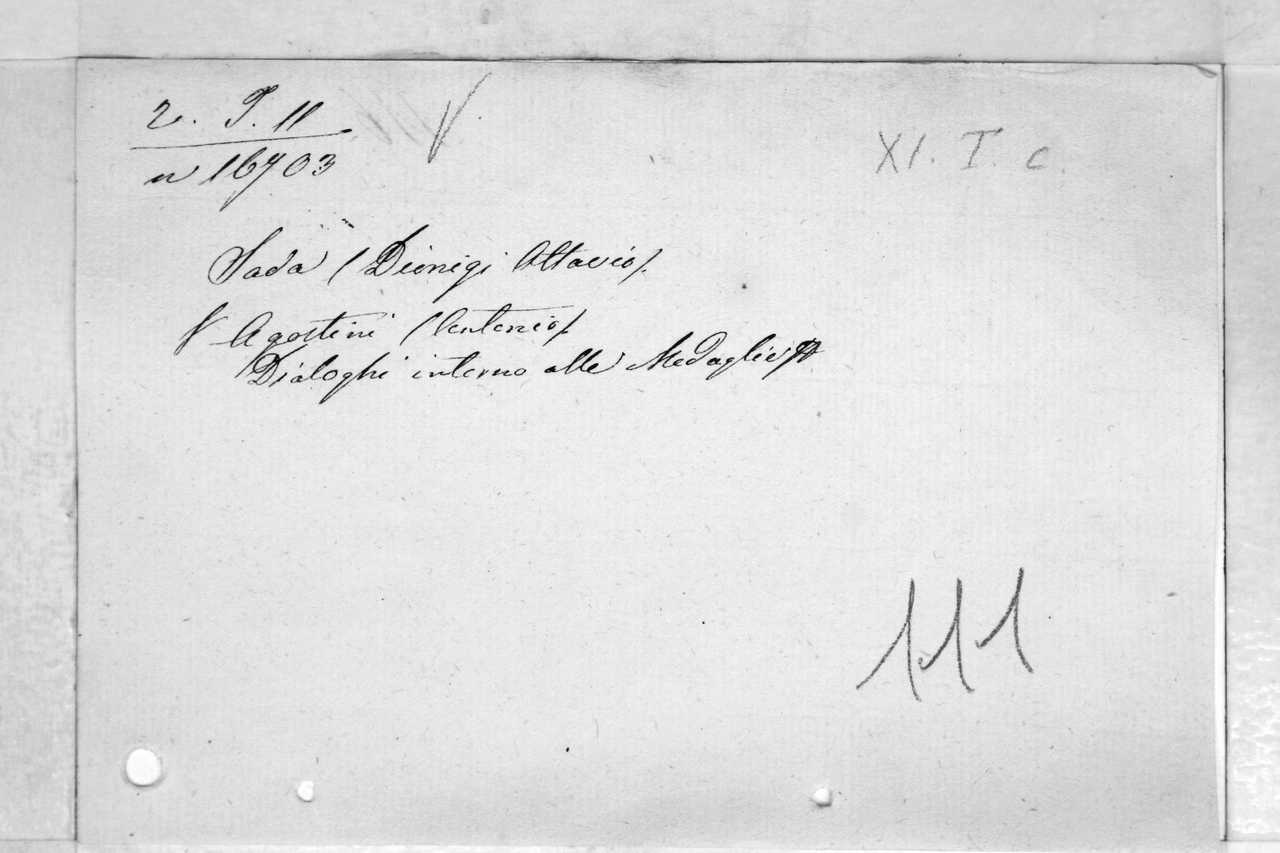 2. T. 11
XI. T. c.
n 16703
Sada (Dionigi Ottavio).
V Agostini (Antonio)
Dialoghi intorno alle Medaglie
111